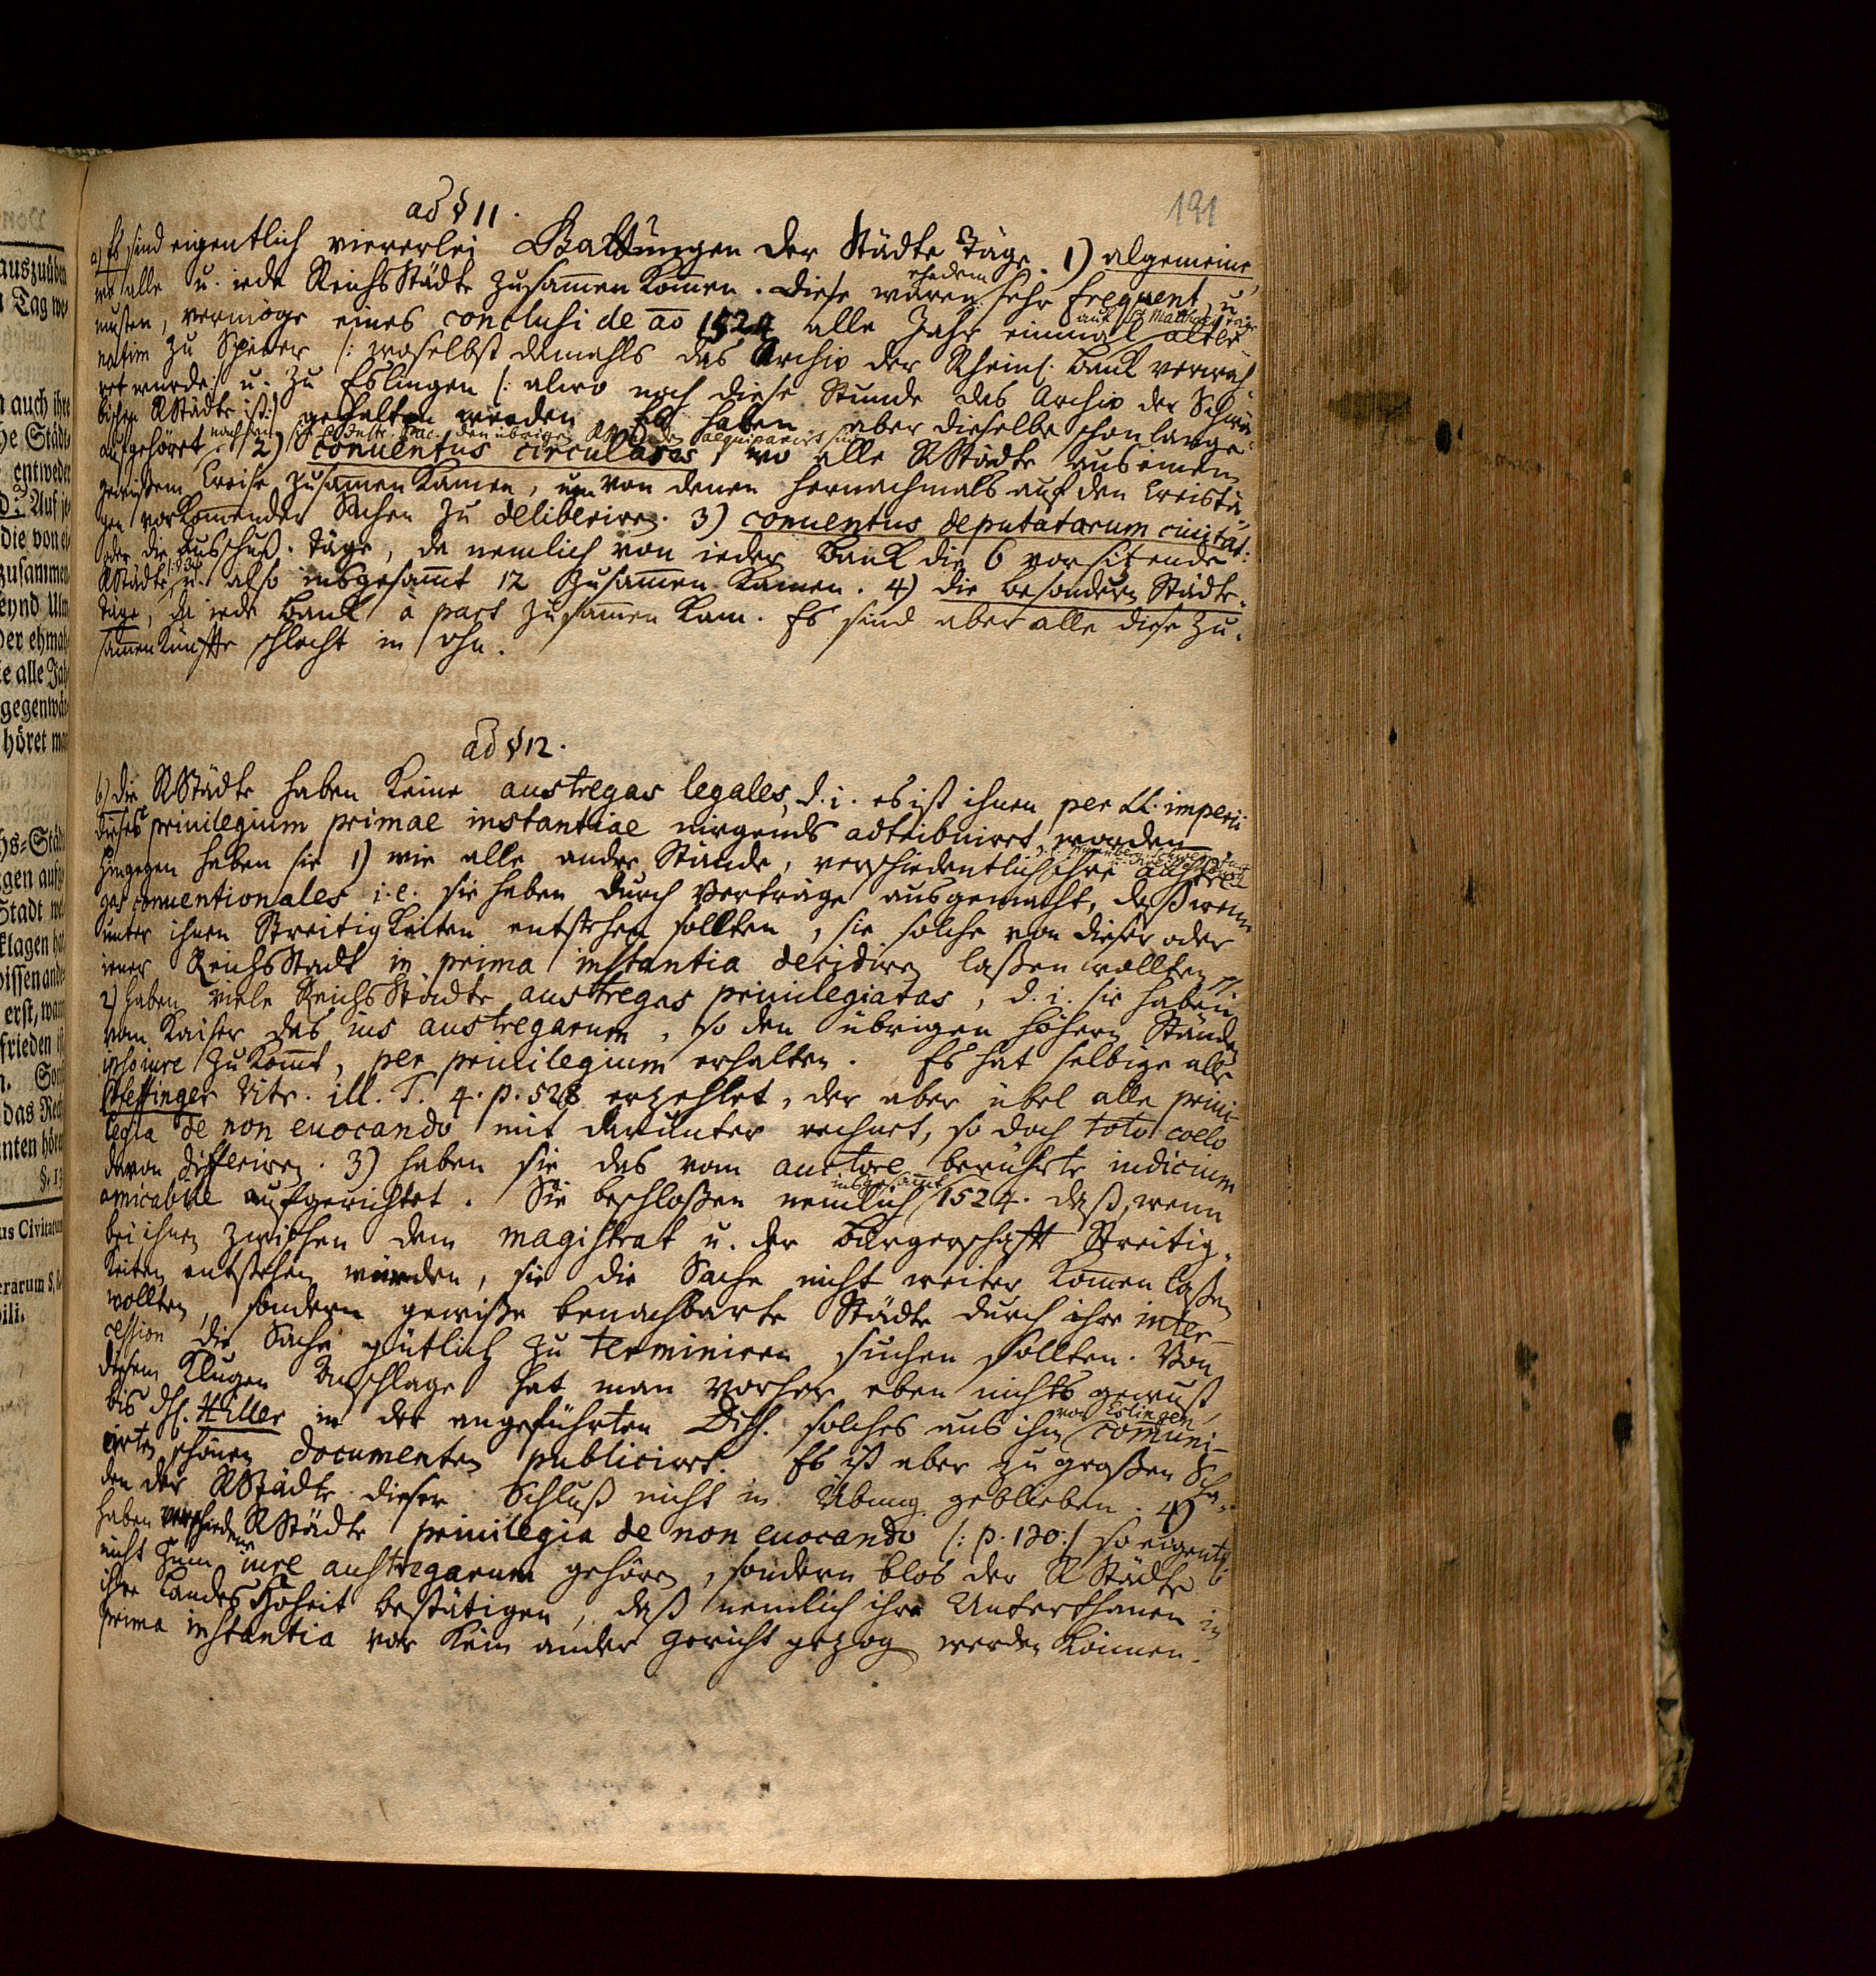 191
ad § 11.
a) Es sind eigentlich viererlei Gattungen der Städte Täge. 1) algemeine,
wo alle u. iede ReichsStädte zusam̄en kom̄en. Diese waren ehedem sehr frequent, u.
musten, vermöge eines conclusi de ao 1524 alle Jahr einmal auf St Matthaei Tage alter-
natim zu Speier /: woselbst damahls das Archiv der Rheins. Bank verwah-
ret wurde :/ u. zu Eslingen /: alwo noch diese Stunde das Archiv der Schwä-
bischen RStädte ist :/ gehalten werden. Es haben aber dieselbe schon lange
aufgehöret. 2) conuentus circulares, wo alle RStädte aus einem
gewißem Creise zusamen kamen, um von denen hernachmals auf den Creistä-
gen vorkom̄enden Sachen zu deliberiren. 3) conuentus deputatarum ciuitat.
oder die Ausschuß-Täge, da nemlich von ieder Bank die 6 vorsitzende
RStädte, u. also insgesam̄t 12 zusam̄en kamen. 4) die besondern Städte-
Täge, da iede Bank à part zusam̄en kam. Es sind aber alle diese Zu-
sam̄enkünffte schlecht in ohn.
ad § 12.
b) Die RStädte haben keine austregas legales, d. i. es ist ihnen per LL. imperii
dieses priuilegium primae instantiae nirgends adtribuiret worden
Hingegen haben sie 1) wie alle andre Stände, verschiedentlich ihre austre-
gas conuentionales i. e. sie haben durch Verträge ausgemacht, daß wenn
unter ihnen Streitigkeiten entstehen sollten, sie solche von dieser oder
iener ReichsStadt in prima instantia decidiren laßen wollten
2) haben viele ReichsStädte austregas priuilegiatas, d. i. sie haben
vom Kaiser das ius austregarum, so den übrigen höhern Ständen
ipso iure zukom̄t, per priuilegium erhalten. Es hat selbige alle
Pfeffinger Vitr. ill. T. 4. p. 528 erzehlet, der aber übel alle priui-
legia de non euocando mit darunter rechnet, so doch toto coelo
davon differiren. 3) haben sie das vom auctore berührte iudicium
amicabile aufgerichtet. Sie beschloßen nemlich insgesamt 1524. daß, wenn
bei ihnen zwischen dem magistrat u. der Bürgerschafft Streitig-
keiten entstehen würden, sie die Sache nicht weiter kom̄en laßen
wollten, sondern gewiße benachbarte Städte durch ihre inter-
cession die Sache gütlich zu terminiren suchen sollten. Von
diesem klugen Anschlage hat man vorher eben nichts gewust,
bis H. Hiller in der angeführten Diss. solches aus ihm von Eslingen com̄uni-
cirten schönen documenten publiciret. Es ist aber zu großen Scha-
den der RStädte dieser Schluß nicht in Übung geblieben. 4)
haben verschiedene RStädte priuilegia de non euocando /: p. 130 :/ so eigentl.
nicht zum iure austregarum gehören, sondern blos der RStädte
ihre LandesHoheit bestätigen, daß nemlich ihre Unterthanen in
prima instantia vor kein ander Gericht gezogen werden können.
auszuüben
Tag wo
auch ihre
Städt-
entweder
Auf je-
die von ei-
zusammen
Ulm
Der ehmah-
ie alle Jah-
gegenwär-
höret man
klagen
wissen
erst,
frieden
das Rech
us Civitatum
erarum